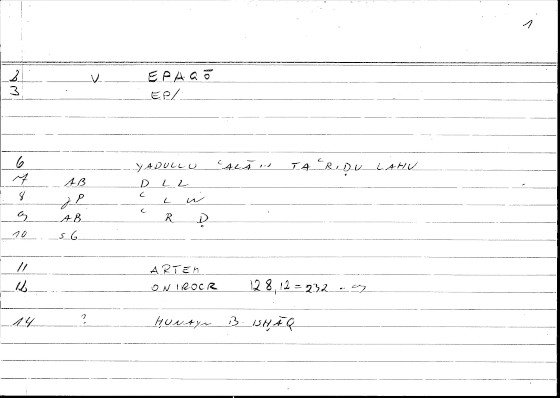 1
2 V EPAGŌ
3 EP/
6 YADULLU ʿALĀ TAʿRIḌU LAHU
7 AB D L L
8 JP ʿ L W
9 AB ʿ R Ḍ
10 SG
11 ARTEM
12 ONIROCR 128,12 = 232
14 ? HUNAYN B ISḤĀQ